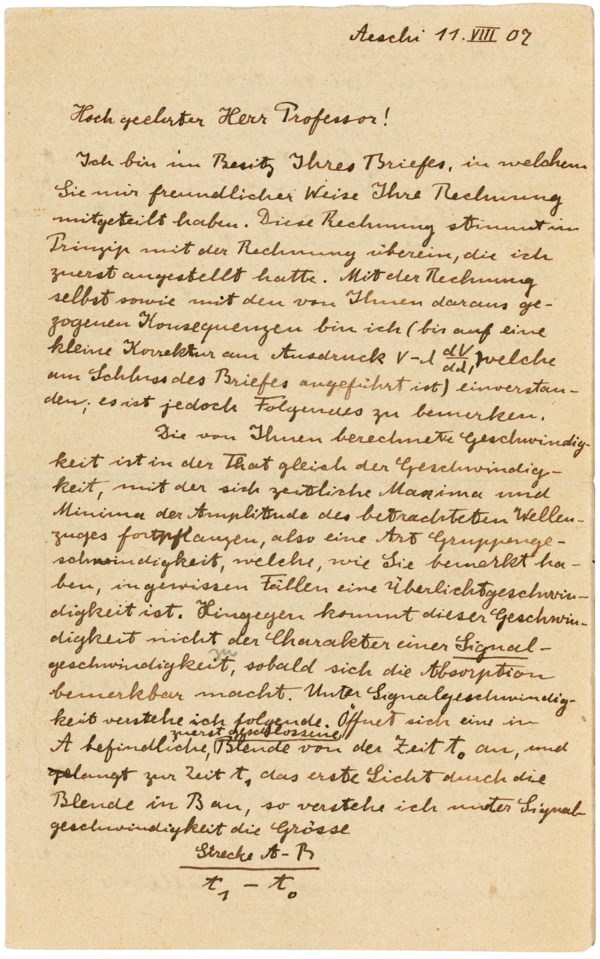 Aeschi 11. VIII 07
Hoch geehrter Herr Professor!
Ich bin im Besitz Ihres Briefes, in welchem
Sie mir freundlicher Weise Ihre Rechnung
mitgeteilt haben. Diese Rechnung stimmt im
Prinzip mit der Rechnung überein, die ich
zuerst angestellt hatte. Mit der Rechnung
selbst sowie mit den von Ihnen daraus ge-
zogenen Konsequenzen bin ich (bis auf eine
kleine Korrektur am Ausdruck V-λ dV/dλ, welche
am Schluss des Briefes angeführt ist) einverstan-
den; es ist jedoch Folgendes zu bemerken.
Die von Ihnen berechnete Geschwindig-
keit ist in der That gleich der Geschwindig-
keit, mit der sich zeitliche Maxima und
Minima der Amplitude des betrachteten Wellen-
zuges fortpflanzen, also eine Art Gruppenge-
schwindigkeit, welche, wie Sie bemerkt ha-
ben, in gewissen Fällen eine Überlichtgeschwin-
digkeit ist. Hingegen kommt dieser Geschwin-
digkeit nicht der Charakter einer Signal-
zu
geschwindigkeit, sobald sich die Absorption
bemerkbar macht. Unter Signalgeschwindig-
keit verstehe ich folgende. Öffnet sich eine in
zuerst geschlossene
A befindliche, Blende von der Zeit t₀ an, und
gelangt zur Zeit t₁ das erste Licht durch die
Blende in B an, so verstehe ich unter Signal-
geschwindigkeit die Grösse
Strecke A-B
t₁ - t₀